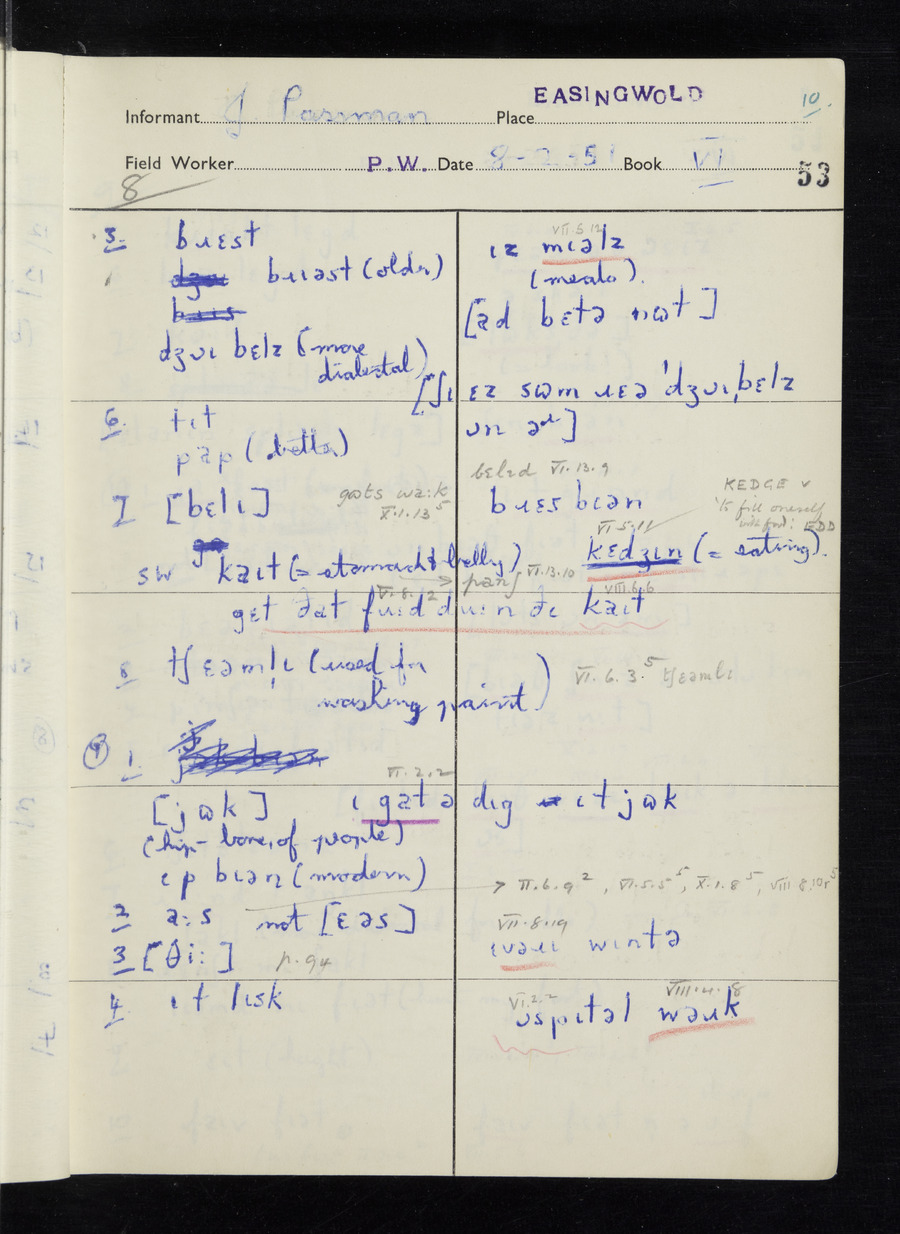 EASINGWOLD
10.
Informant J. Pasman Place
Field Worker P.W. Date 8 - - 51 Book VI
53
8
5. bɹɛst
bɹɪəst (older)
dʒʊɪ bɛlz (more
dialectal)
VII.5.12
ɪz mɪəlz
(meals).
[ad bɛtə nɷt]
[ʃɪ ɛz sɷm ɹɛə 'dʒʊɪˌbɛlz
ʊn əɹ]
6. tɪt
pap (better)
7 [bɛlɪ]
gɷts wa:k
X.1.13⁵
bɛlɪd VI.13.9
bɹɛs bɪən
KEDGE v
'to fill oneself
with food': EDD
VI.5.11
sw kaɪt (= stomach & belly)
→ pang VI.13.10
kɛdʒɪn (= eating).
VI.8.12
VIII.6.6
get ðat fʊɪd dʊɪn ðɪ kaɪt
8 tʃɛəmlɪ (used for
washing paint)
VI.6.3.⁵ tʃɛəmlɪ
9 1.
VI.2.2
[jɷk] ɪ gat ə dɪg ɪt jɷk
(hip-bone, of people)
ɪp bɪən (modern)
→ II.6.9², VI.5.5⁵, X.1.8⁵, VIII.8.10r⁵
2 a:s not [ɛəs]
VII.8.19
ɪvəɹɪ wɪntə
3 [θi:] p.94
4. ɪt lɪsk
VI.2.2
VIII.4.8
ʊspɪtəl waɹk